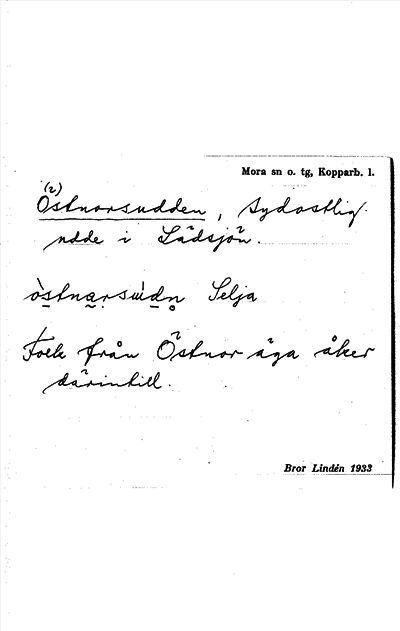 Mora sn o. tg, Kopparb. l.
(2)
Östnorsudden, sydostlig
udde i Sädsjön.
òstnąrsùdn̥ Selja
Folk från Östnor äga åker
därintill.
Bror Lindén 1933